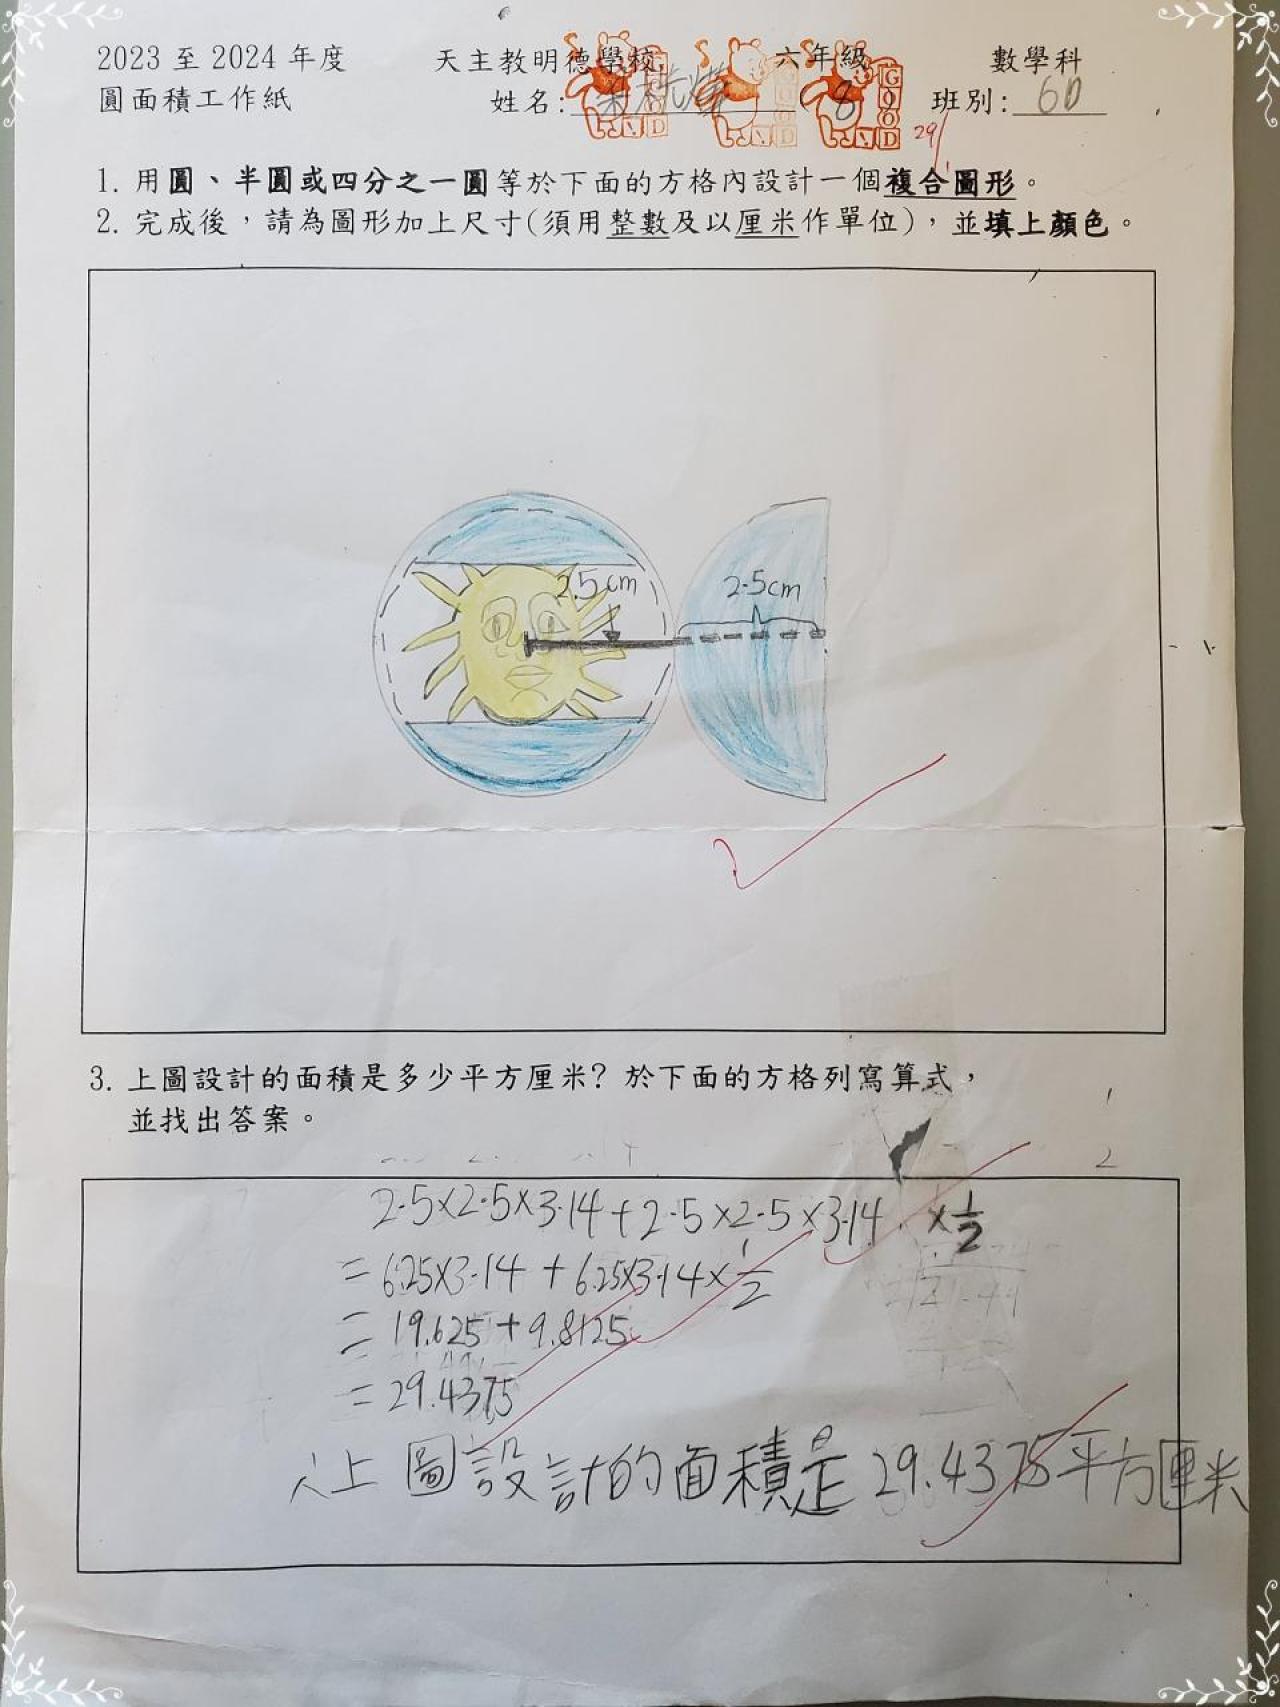 2023 至 2024 年度 天主教明德學校 六年級 數學科
圓面積工作紙 姓名: (8) 班別: 6D
29/1
GOOD
1. 用圓、半圓或四分之一圓等於下面的方格內設計一個複合圖形。
2. 完成後，請為圖形加上尺寸(須用整數及以厘米作單位)，並填上顏色。
2.5cm 2.5cm
3. 上圖設計的面積是多少平方厘米? 於下面的方格列寫算式，
並找出答案。
2.5×2.5×3.14+2.5×2.5×3.14 ×1/2
=6.25×3.14+6.25×3.14×1/2
=19.625+9.8125
=29.4375
上圖設計的面積是29.4375平方厘米